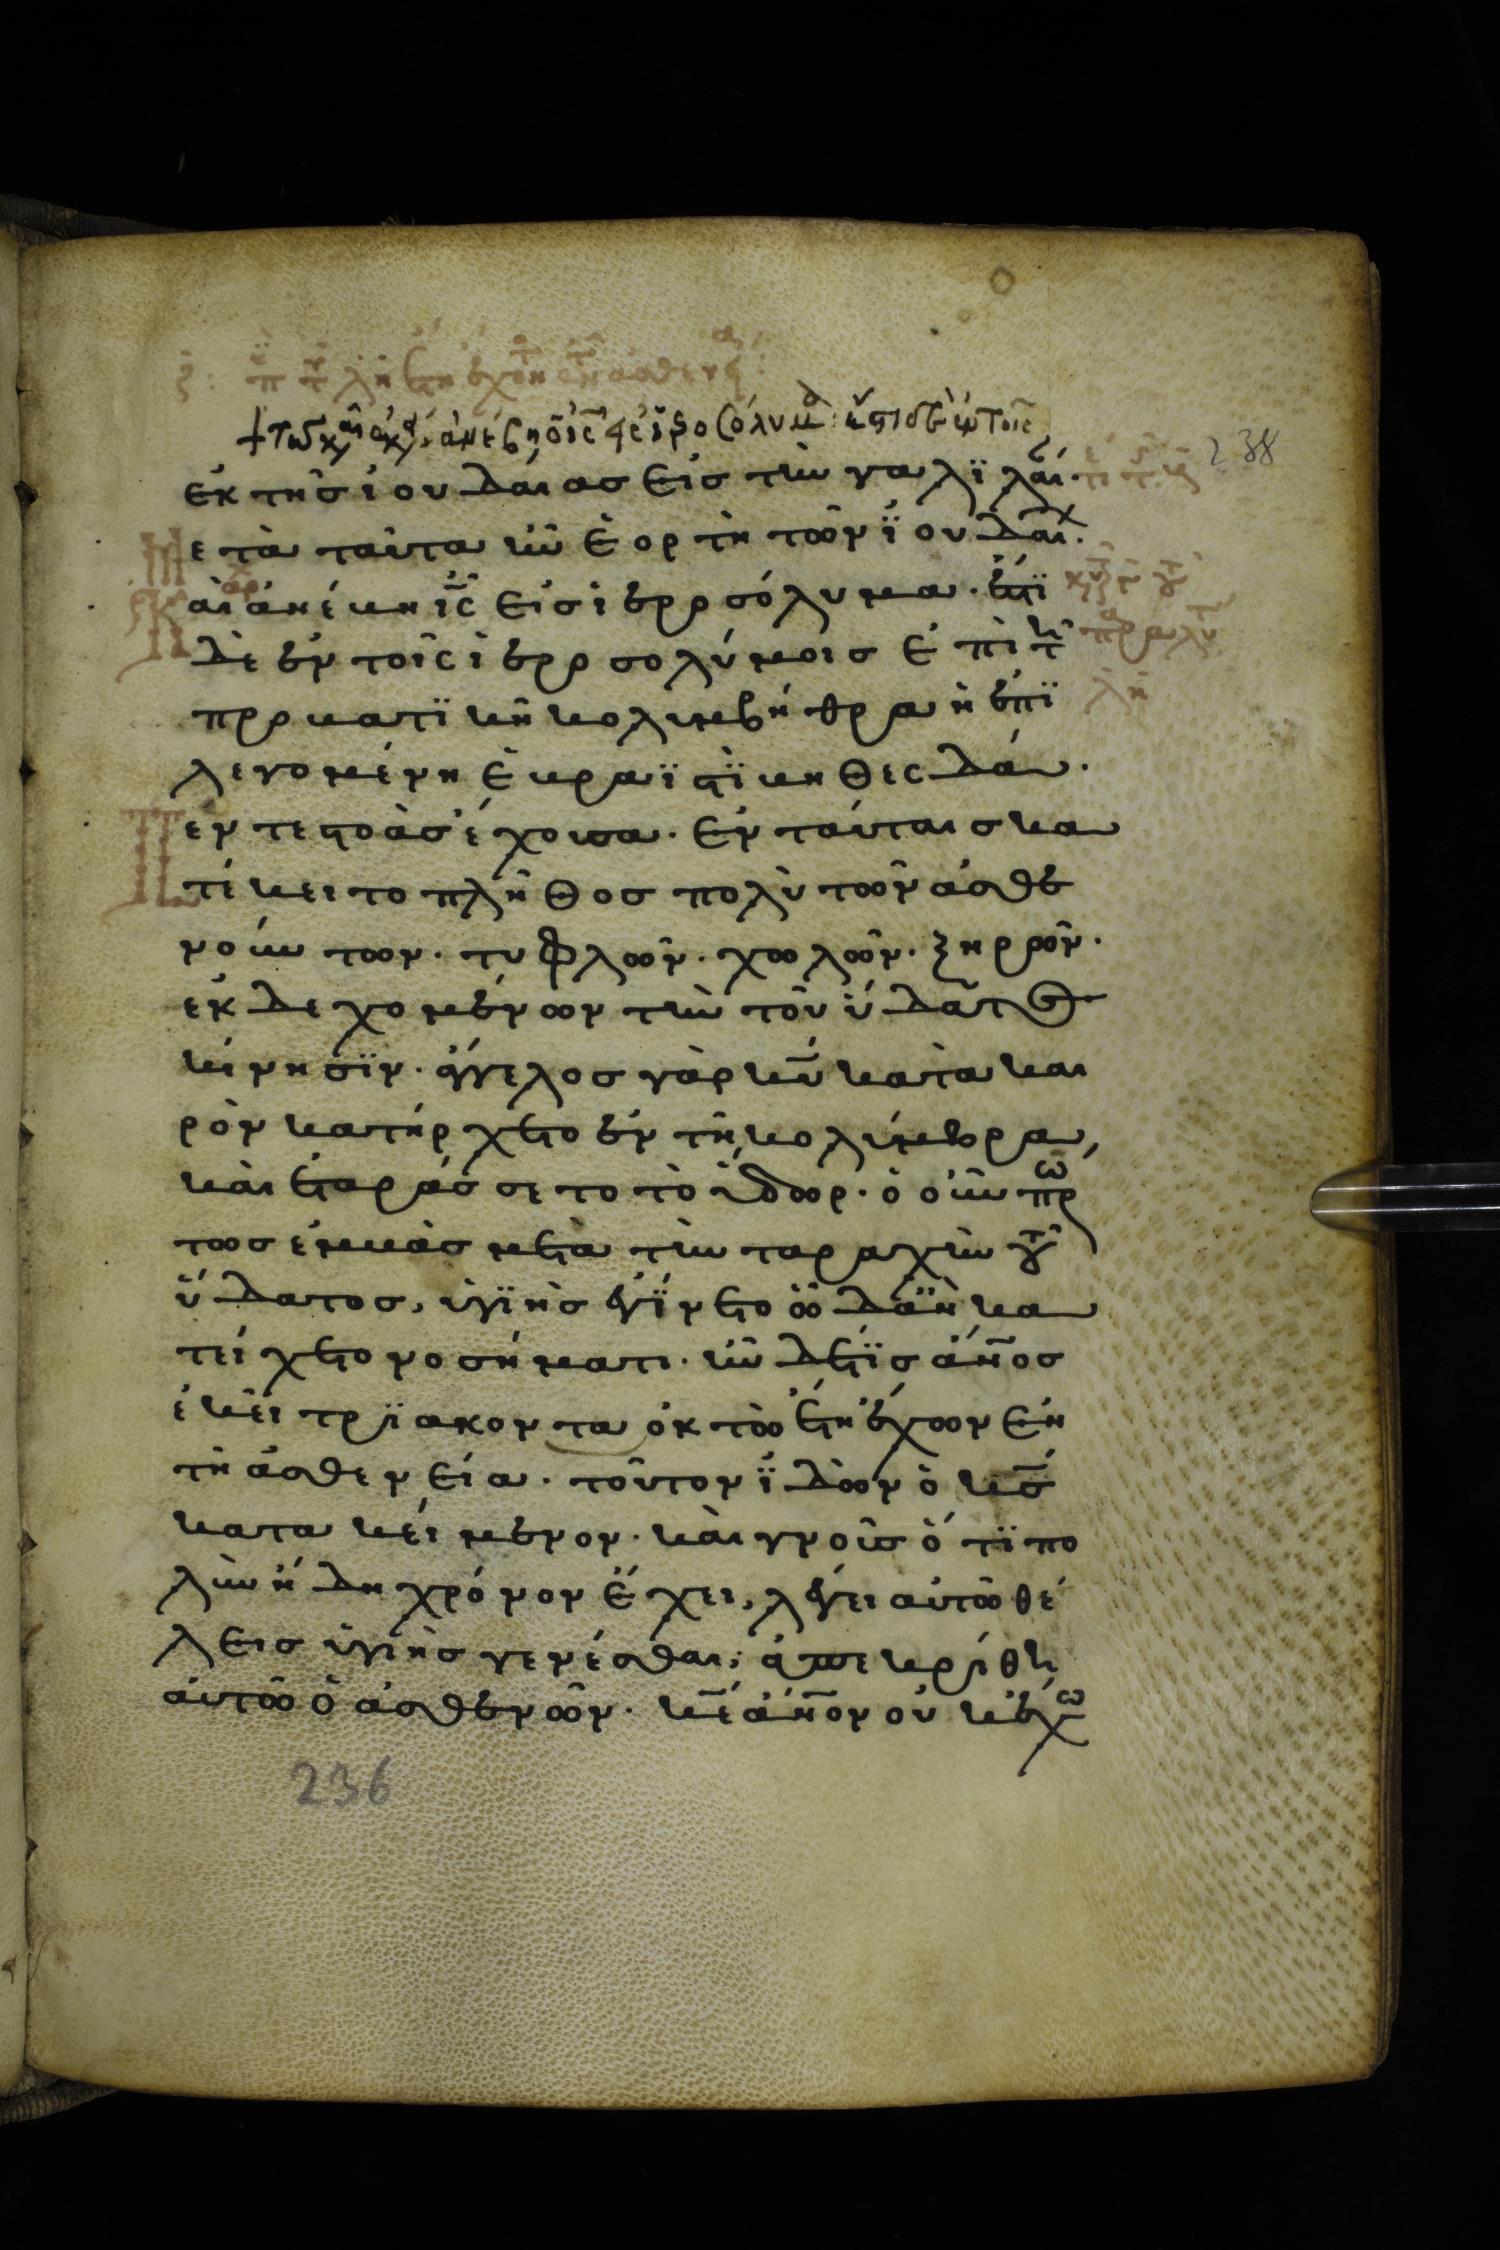 ἐκ τῆσ ἰουδαίασ εἰσ τὴν γαλϊλαί·
Μετὰ ταῦτα ἦν ἑορτὴ τῶν ϊουδαι·
Καὶ ἀνέβη ις̅ εἰσ ἱεροσόλυμα· ἔστϊ
δὲ ἐν τοῖς ἱεροσολύμοισ ἐπὶ τῆ
προβατϊκῆ κολυμβήθρα ἡ ἐπϊ
λεγομένη ἑβραϊστϊ βηθεσδά·
Πέντε στοὰσ ἔχουσα· ἐν ταύταισ κα
τέκειτο πλῆθοσ πολὺ τῶν ἀσθε
νούντων· τυφλῶν· χωλῶν· ξηρῶν·
ἐκδεχομένων τὴν τοῦ ὕδατος
κίνησϊν· ἄγγελοσ γὰρ κυ̅ κατὰ και
ρὸν κατήρχετο ἐν τῆ κολυμβήθρα,
καὶ ἐταράσσετο τὸ ὕδωρ· ὁ οὖν πρω
τοσ ἐμβὰσ μετὰ τὴν ταραχὴν τοῦ
ὕδατοσ, ὑγϊὴσ ἐγίνετο ὧ δἂν κα
τείχετο νοσήματι· ἦν δέ τϊσ ἄνο̅σ
ἐκεῖ τρϊακονταοκτὼ ἔτη ἔχων ἐν
τῆ ἀσθενεία· τοῦτον ϊδὼν ὁ κσ̅
κατακείμενον· καὶ γνοὺσ ὅτϊ πο
λὺν ἤδη χρόνον ἔχει, λέγει αὐτῶ θέ
λεισ ὑγιὴσ γενέσθαι; ἀπεκρίθη
αὐτῶ ὁ ἀσθενῶν· κε̅ ἄνο̅ν οὐκ ἔχω
236
238